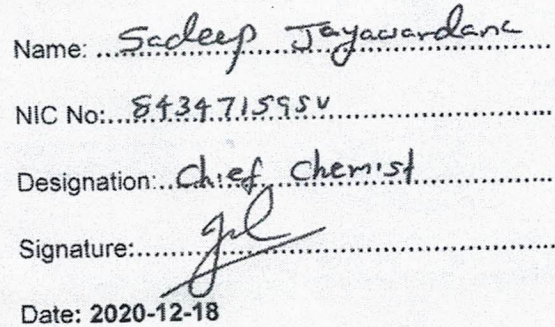 Name: Sadeep Jayawardana
NIC No: 843471595V
Designation: Chief Chemist
Signature:
Date: 2020-12-18